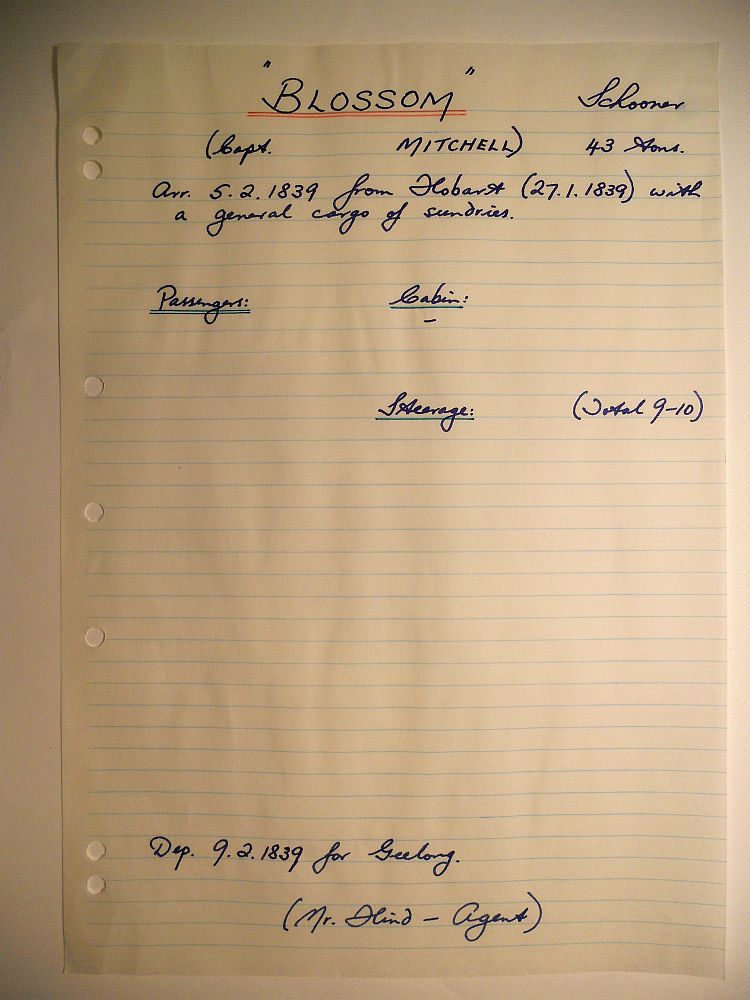 "BLOSSOM" Schooner
(Capt. MITCHELL) 43 tons.
Arr. 5.2.1839 from Hobart (27.1.1839) with
a general cargo of sundries.
Passengers: Cabin:
–
Steerage: (Total 9-10)
Dep. 9.2.1839 for Geelong.
(Mr. Hind – Agent)